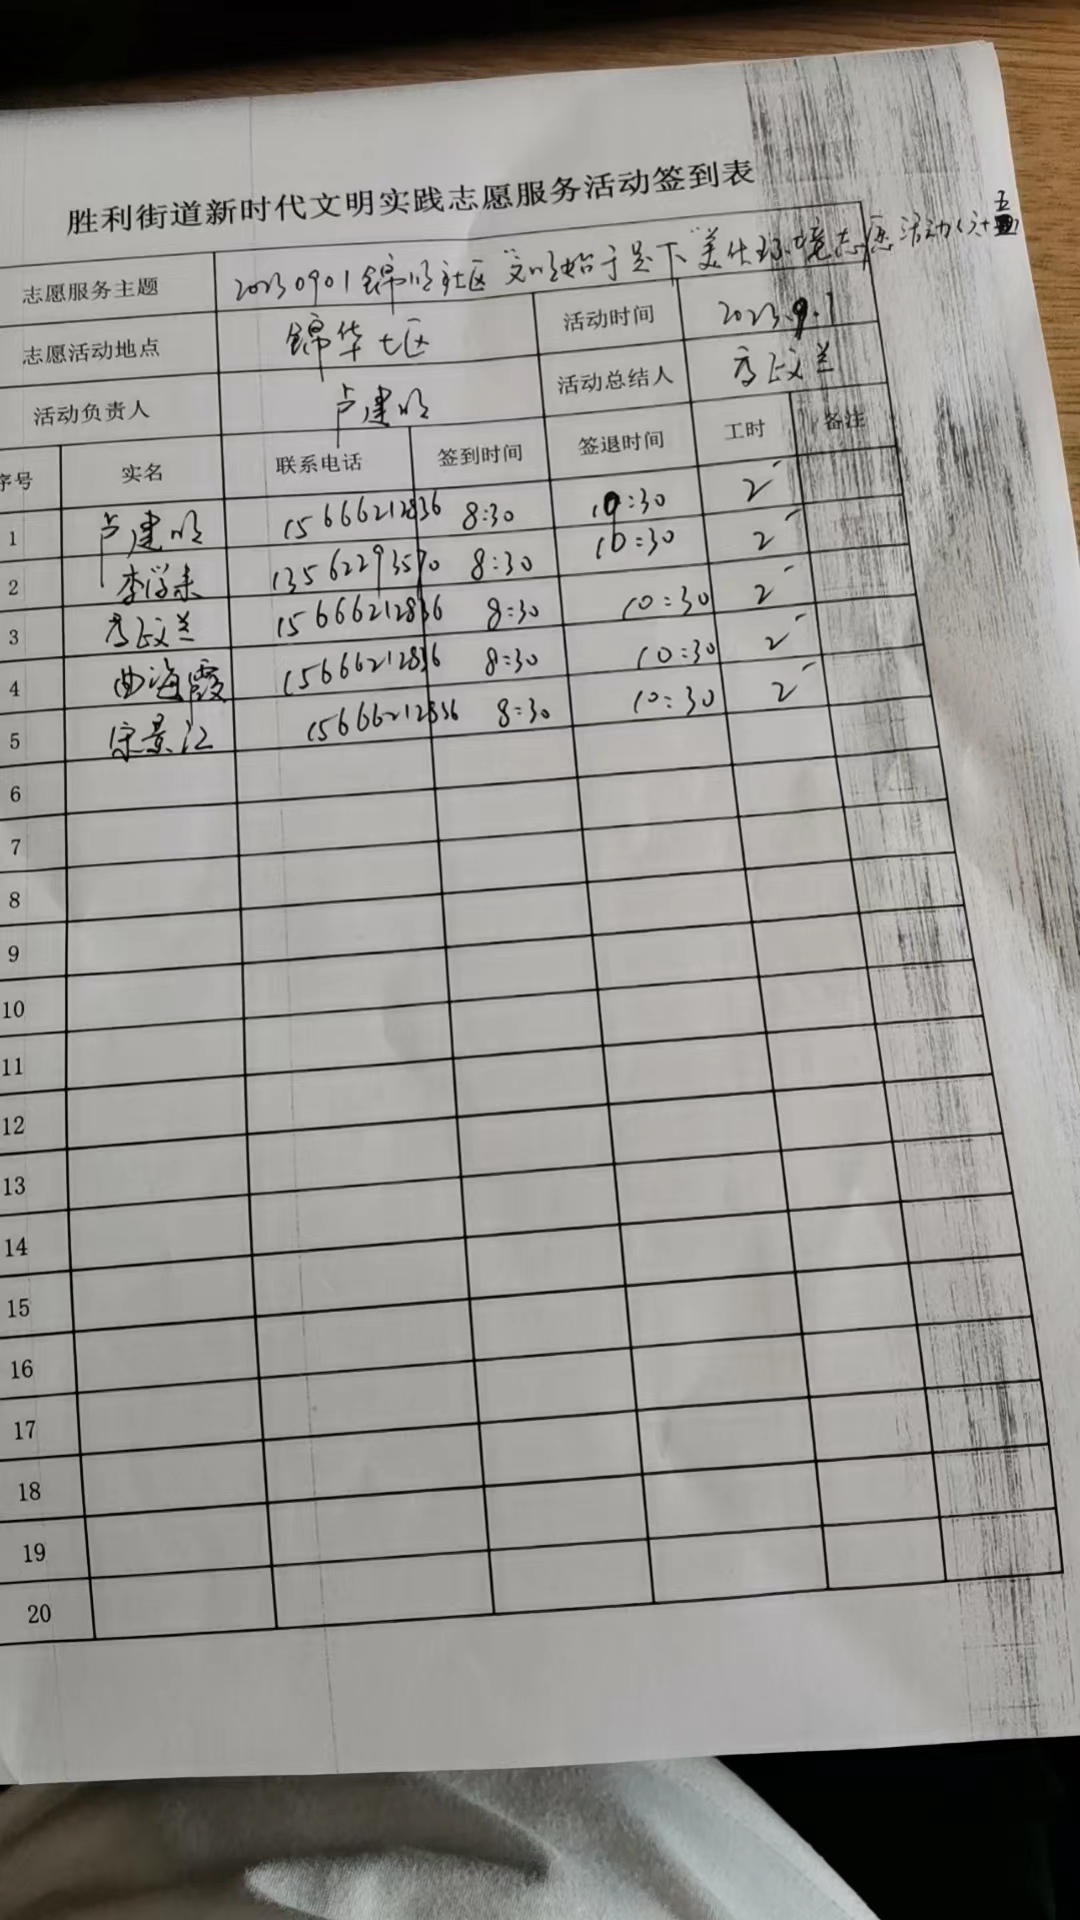 胜利街道新时代文明实践志愿服务活动签到表
志愿服务主题 20230901锦明社区"文明始于足下"美化环境志愿活动(六十五)
志愿活动地点 锦华七区 活动时间 2023.9.1
活动负责人 卢建明 活动总结人
序号 实名 联系电话 签到时间 签退时间 工时 备注
1 卢建明 15666212836 8:30 10:30 2
2 13562293570 8:30 10:30 2
3 15666212836 8:30 10:30 2
4 曲海霞 15666212836 8:30 10:30 2
5 宋景江 15666212836 8:30 10:30 2
6
7
8
9
10
11
12
13
14
15
16
17
18
19
20